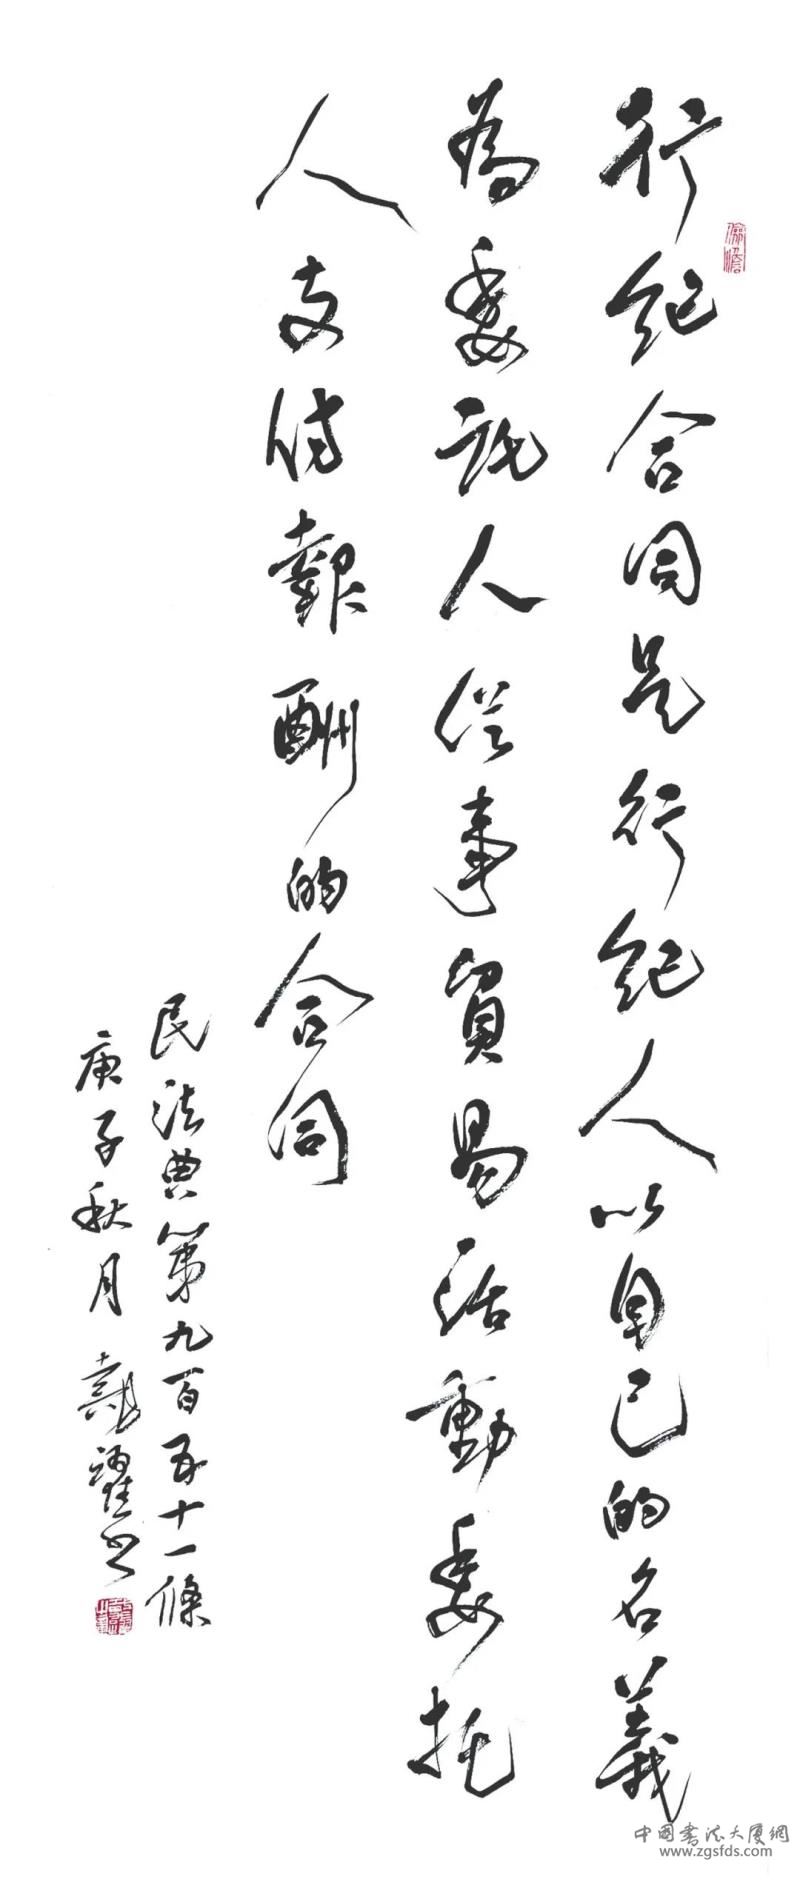 行紀合同是行紀人以自己的名義
為委託人從事貿易活動委托
人支付報酬的合同
民法典第九百五十一條
庚子秋月 戴躍書
中国书法大厦網
www.zgsfds.com